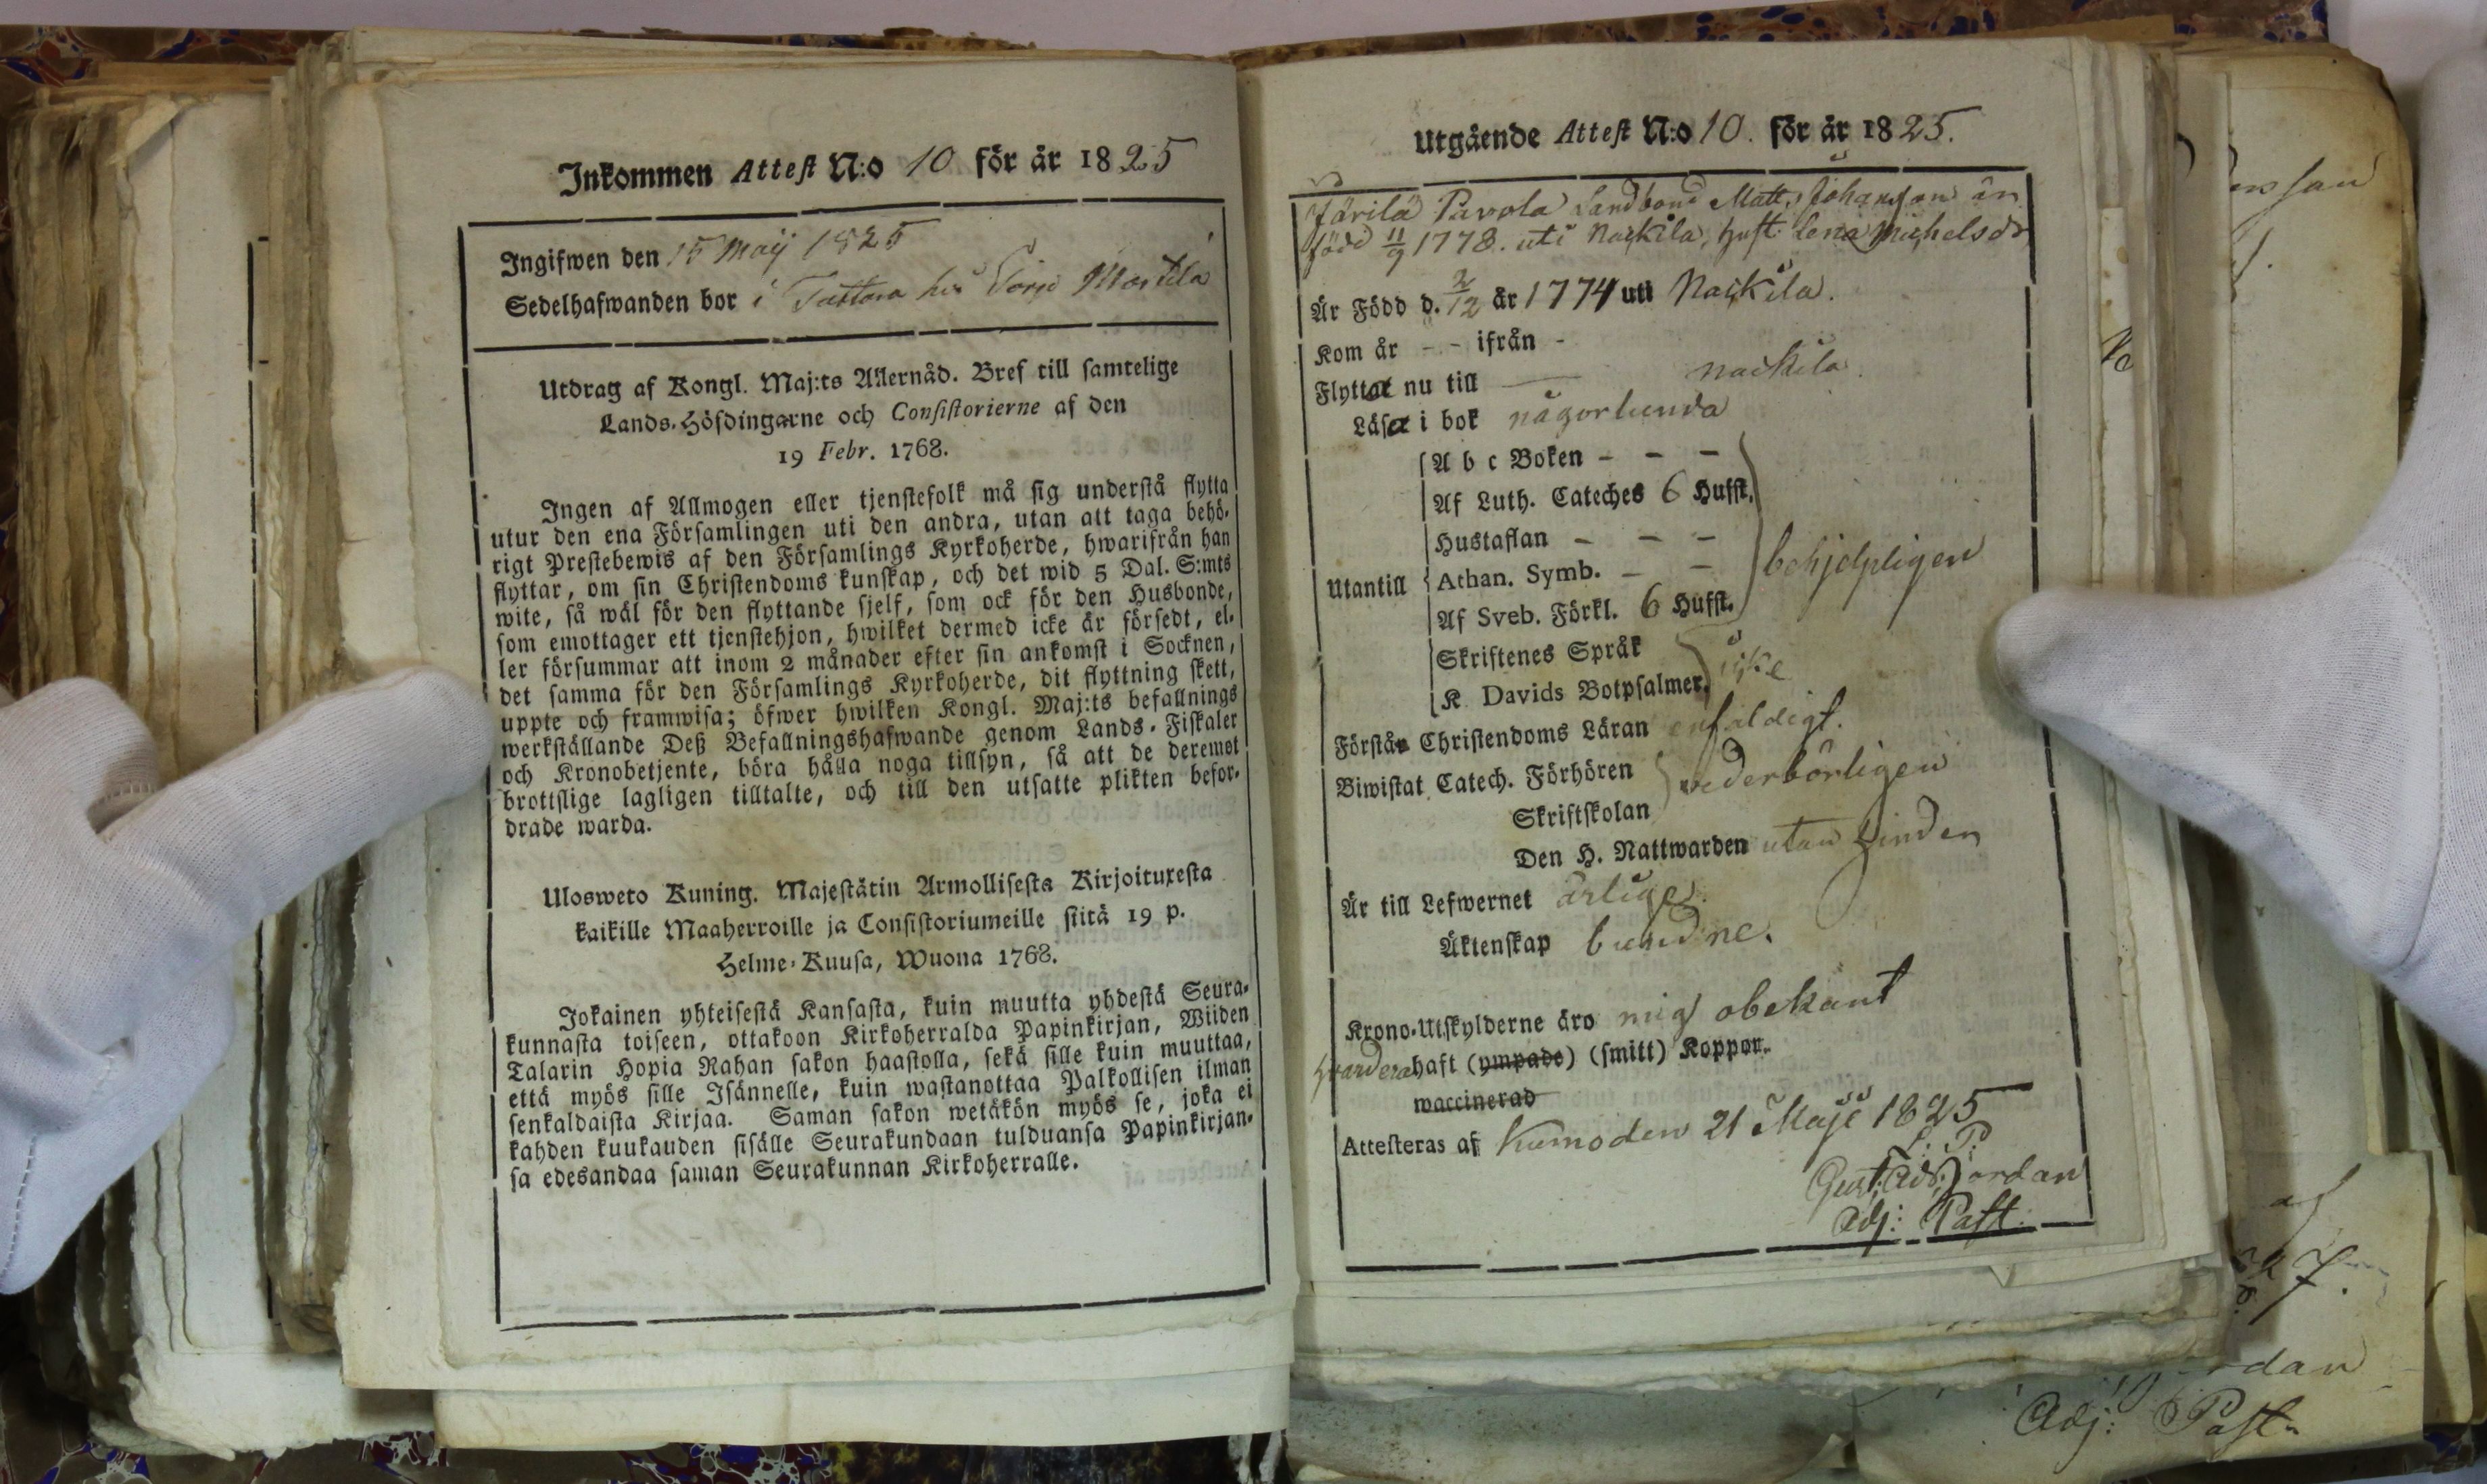 Inkommen Attest N:o 10 för år 1825
Ingifwen den 15 Maij 1825
Sedelhafwanden bor i Tattara hos
Utdrag af Kongl. Maj:ts Allernåd. Bref till samtelige
Lands-Höfdingarne och Consistorierne af den
19 Febr. 1768.
Ingen af Allmogen eller tjenstefolk må sig understå flytta
utur den ena Församlingen uti den andra, utan att taga behö-
rigt Prestebewis af den Församlings Kyrkoherde, hwarifrån han
flyttar, om sin Christendoms kunskap, och det wid 5 Dal. S:mts
wite, så wäl för den flyttande sjelf, som ock för den Husbonde,
som emottager ett tjenstehjon, hwilket dermed icke är försedt, el-
ler försummar att inom 2 månader efter sin ankomst i Socknen,
det samma för den Församlings Kyrkoherde, dit flyttning skett,
uppte och framwisa; öfwer hwilken Kongl. Maj:ts befallnings
werkställande Deß Befallningshafwande genom Lands-Fiskaler
och Kronobetjente, böra hålla noga tillsyn, så att de deremot
brottslige lagligen tilltalte, och till den utsatte plikten befor-
drade warda.
Ulosweto Kuning. Majestätin Armollisesta Kirjoituxesta
kaikille Maaherroille ja Consistoriumeille siitä 19 p.
Helme-Kuusa, Wuona 1768.
Jokainen yhteisestä Kansasta, kuin muutta yhdestä Seura-
kunnasta toiseen, ottakoon Kirkoherralda Papinkirjan, Wiiden
Talarin Hopia Rahan sakon haastolla, sekä sille kuin muuttaa,
että myös sille Isännelle, kuin wastanottaa Palkollisen ilman
senkaldaista Kirjaa. Saman sakon wetäkön myös se, joka ei
kahden kuukauden sisälle Seurakundaan tulduansa Papinkirjan-
sa edesandaa saman Seurakunnan Kirkoherralle.
Utgående Attest N:o 10. för år 1825.
Järilä Pavola Landbond Matts Johansson är
född 11/9 1778. uti Nackila, Hust: Lena Michelsdr
Är Född d. 2/12 år 1774 uti Nackila.
Kom år - - ifrån -
Flyttat nu till Nackila.
Läsa i bok någorlunda
A b c Boken - - -
Af Luth. Cateches 6 Hufst.
Hustaflan - - -
Utantill Athan. Symb. - - behjelpligen
Af Sveb. Förkl. 6 Hufst.
Skriftenes Språk
K. Davids Botpsalmer. icke
Förstå Christendoms Läran enfaldigt.
Biwistat Catech. Förhören
Skriftskolan wederbörligen
Den H. Nattwarden utan hinder
Är till Lefwernet ärlige.
Äktenskap bundne.
Krono-Utskylderne äro mig obekant
haft (ympade) (smitt) Koppor.
waccinerad
Attesteras af Kumo den 21 Maji 1825
Gust: Ad: Jordan
Adj: Past.